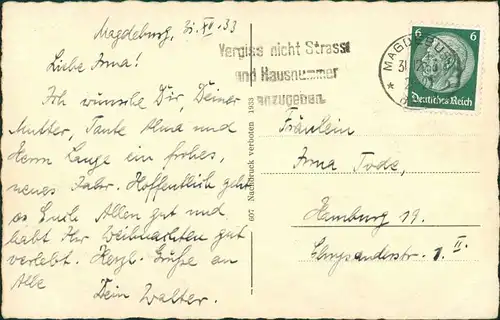 Magdeburg, 31. XII. 33
Liebe Anna!
Ich wünsche Dir, Deiner
Mutter, Tante Alma und
Herrn Lange ein frohes,
neues Jahr. Hoffentlich geht
es Euch Allen gut und
habt Ihr Weihnachten gut
verlebt. Herzl. Grüße an
Alle
Dein Walter.
Vergiss nicht Strasse
und Hausnummer
anzugeben.
MAGDEBURG
6 6
Deutsches Reich
607 Nachdruck verboten 1933
Fräulein
Anna Tode,
Hamburg 19.
1. II.